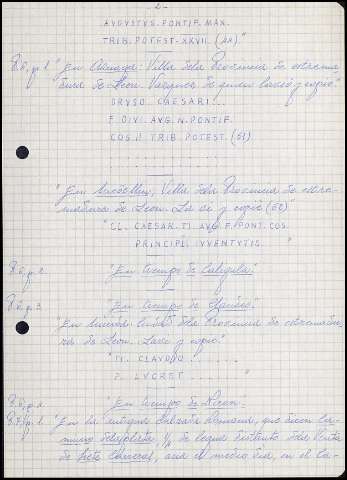 - 2 -
AVGVSTVS. PONTIF. MAX.
TRIB. POTEST. XXVII. "
80, p. 1. "En Villa dela Provincia de estrema-
dura de Leon. Vazquez de quien la vió y copió."
DRVSO CAESARI . . .
F. DIVI. AVG. N. PONTIF.
COS. II TRIB. POTEST. (61)
. . . . . . . . . . . .
. . . . . . . . . . . .
"En Villa dela Provincia de estre-
madura de Leon. La vi y copié (62)
"CL. CAESAR. TI. AVG. F. PONT. COS.
PRINCIPI. IVVENTVTIS "
80, p. 2. "En tiempo de Caligula."
80, p. 3. "En tiempo de Claudio."
"En Ciudad dela Provincia de estremadu-
ra de Leon. La vi y copié."
"TI. CLAVDIO . . . . . .
P. LVCRET . . . . .
"En tiempo de
"En la antigua Calzada Romana, que dicen Ca-
mino dela plata, ½ de legua distante dela Venta
de Siete Carreras, acia el medio dia, en el Ca-